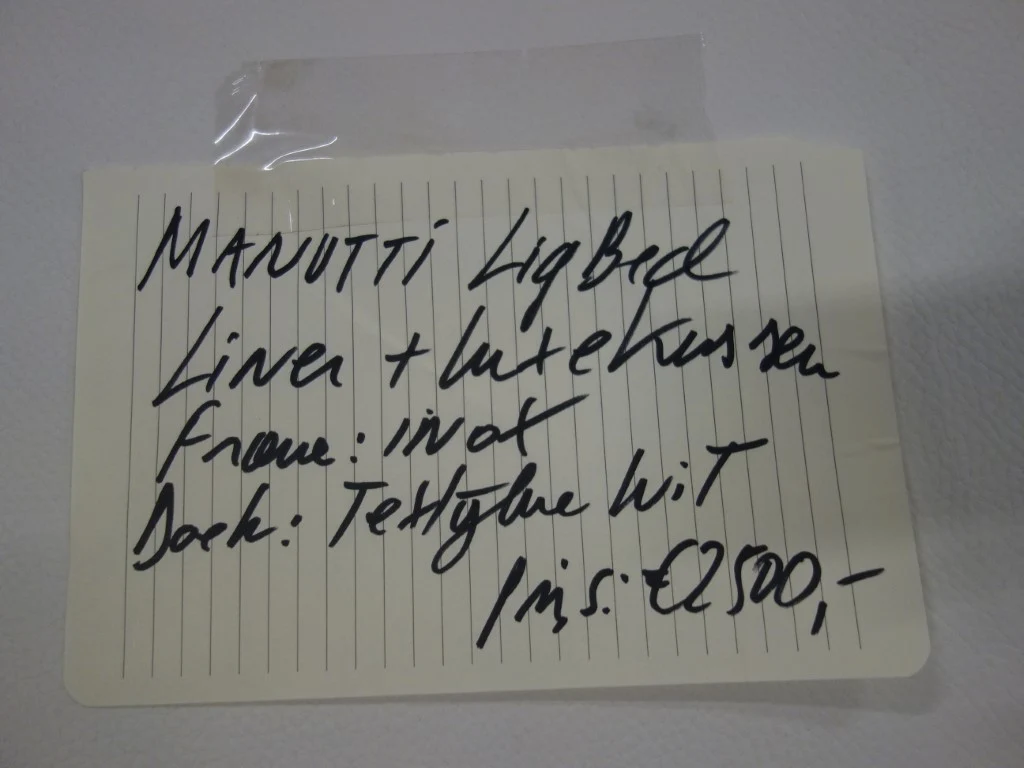 MANUTTI LigBed
Liner + luxe Kussen
Frame: inox
Doek: Textylene WiT
Prijs: €2500,-